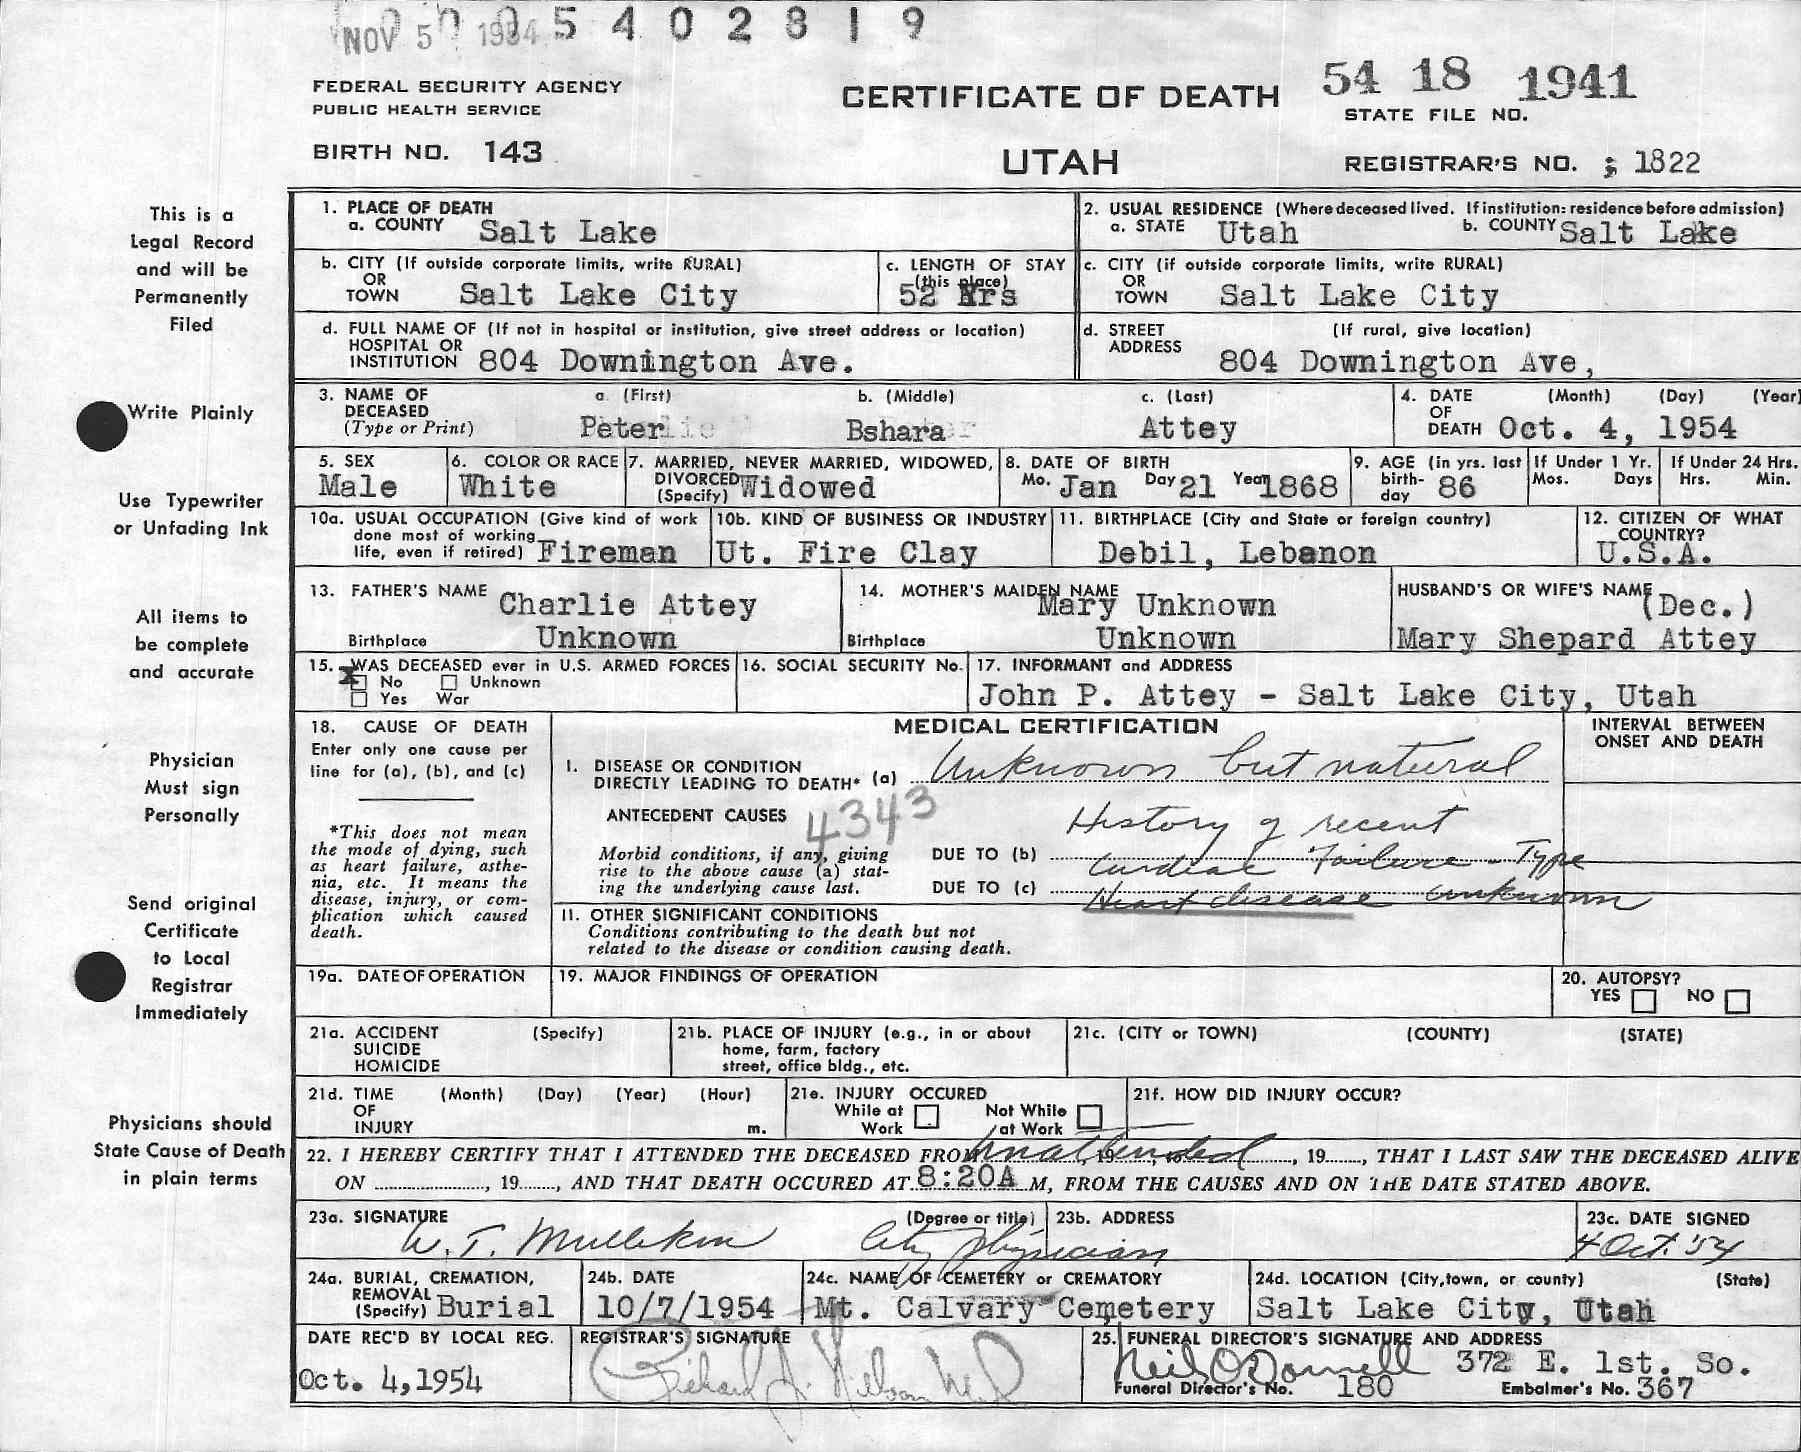 NOV 5 1954 5 4 0 2 8 1 9
FEDERAL SECURITY AGENCY
PUBLIC HEALTH SERVICE
CERTIFICATE OF DEATH
54 18 1941
STATE FILE NO.
BIRTH NO. 143
UTAH
REGISTRAR'S NO. 1822
This is a
Legal Record
and will be
Permanently
Filed
Write Plainly
Use Typewriter
or Unfading Ink
All items to
be complete
and accurate
Physician
Must sign
Personally
Send original
Certificate
to Local
Registrar
Immediately
Physicians should
State Cause of Death
in plain terms
1. PLACE OF DEATH
a. COUNTY Salt Lake
2. USUAL RESIDENCE (Where deceased lived. If institution: residence before admission)
a. STATE Utah b. COUNTY Salt Lake
b. CITY (If outside corporate limits, write RURAL)
OR
TOWN Salt Lake City
c. LENGTH OF STAY
(this place)
52 Yrs
c. CITY (if outside corporate limits, write RURAL)
OR
TOWN Salt Lake City
d. FULL NAME OF (If not in hospital or institution, give street address or location)
HOSPITAL OR
INSTITUTION 804 Downington Ave.
d. STREET (If rural, give location)
ADDRESS 804 Downington Ave,
3. NAME OF a. (First) b. (Middle) c. (Last)
DECEASED
(Type or Print) Peter Bshara Attey
4. DATE (Month) (Day) (Year)
OF
DEATH Oct. 4, 1954
5. SEX
Male
6. COLOR OR RACE
White
7. MARRIED, NEVER MARRIED, WIDOWED,
DIVORCED
(Specify) Widowed
8. DATE OF BIRTH
Mo. Jan Day 21 Year 1868
9. AGE (in yrs. last
birth-
day 86
If Under 1 Yr.
Mos. Days
If Under 24 Hrs.
Hrs. Min.
10a. USUAL OCCUPATION (Give kind of work
done most of working
life, even if retired) Fireman
10b. KIND OF BUSINESS OR INDUSTRY
Ut. Fire Clay
11. BIRTHPLACE (City and State or foreign country)
Debil, Lebanon
12. CITIZEN OF WHAT
COUNTRY?
U.S.A.
13. FATHER'S NAME Charlie Attey
Birthplace Unknown
14. MOTHER'S MAIDEN NAME
Mary Unknown
Birthplace Unknown
HUSBAND'S OR WIFE'S NAME
(Dec.)
Mary Shepard Attey
15. WAS DECEASED ever in U.S. ARMED FORCES
X No Unknown
Yes War
16. SOCIAL SECURITY No.
17. INFORMANT and ADDRESS
John P. Attey - Salt Lake City, Utah
18. CAUSE OF DEATH
Enter only one cause per
line for (a), (b), and (c)
*This does not mean
the mode of dying, such
as heart failure, asthe-
nia, etc. It means the
disease, injury, or com-
plication which caused
death.
MEDICAL CERTIFICATION
INTERVAL BETWEEN
ONSET AND DEATH
I. DISEASE OR CONDITION
DIRECTLY LEADING TO DEATH* (a) Unknown but natural
ANTECEDENT CAUSES 4343
History of recent
Morbid conditions, if any, giving
rise to the above cause (a) stat-
ing the underlying cause last.
DUE TO (b) Cardiac Failure - Type
DUE TO (c) Heart disease unknown
II. OTHER SIGNIFICANT CONDITIONS
Conditions contributing to the death but not
related to the disease or condition causing death.
19a. DATE OF OPERATION
19. MAJOR FINDINGS OF OPERATION
20. AUTOPSY?
YES NO
21a. ACCIDENT (Specify)
SUICIDE
HOMICIDE
21b. PLACE OF INJURY (e.g., in or about
home, farm, factory
street, office bldg., etc.
21c. (CITY or TOWN) (COUNTY) (STATE)
21d. TIME (Month) (Day) (Year) (Hour)
OF
INJURY m.
21e. INJURY OCCURED
While at Not While
Work at Work
21f. HOW DID INJURY OCCUR?
22. I HEREBY CERTIFY THAT I ATTENDED THE DECEASED FROM Unattended, 19......, THAT I LAST SAW THE DECEASED ALIVE
ON ......................, 19......., AND THAT DEATH OCCURED AT 8:20A M, FROM THE CAUSES AND ON THE DATE STATED ABOVE.
23a. SIGNATURE (Degree or title)
W. T. Mullekin City Physician
23b. ADDRESS
23c. DATE SIGNED
4 Oct. '54
24a. BURIAL, CREMATION,
REMOVAL
(Specify) Burial
24b. DATE
10/7/1954
24c. NAME OF CEMETERY or CREMATORY
Mt. Calvary Cemetery
24d. LOCATION (City, town, or county) (State)
Salt Lake City, Utah
DATE REC'D BY LOCAL REG.
Oct. 4,1954
REGISTRAR'S SIGNATURE
Richard J. Nelson M.D.
25. FUNERAL DIRECTOR'S SIGNATURE AND ADDRESS
Neil O'Donnell 372 E. 1st. So.
Funeral Director's No. 180 Embalmer's No. 367